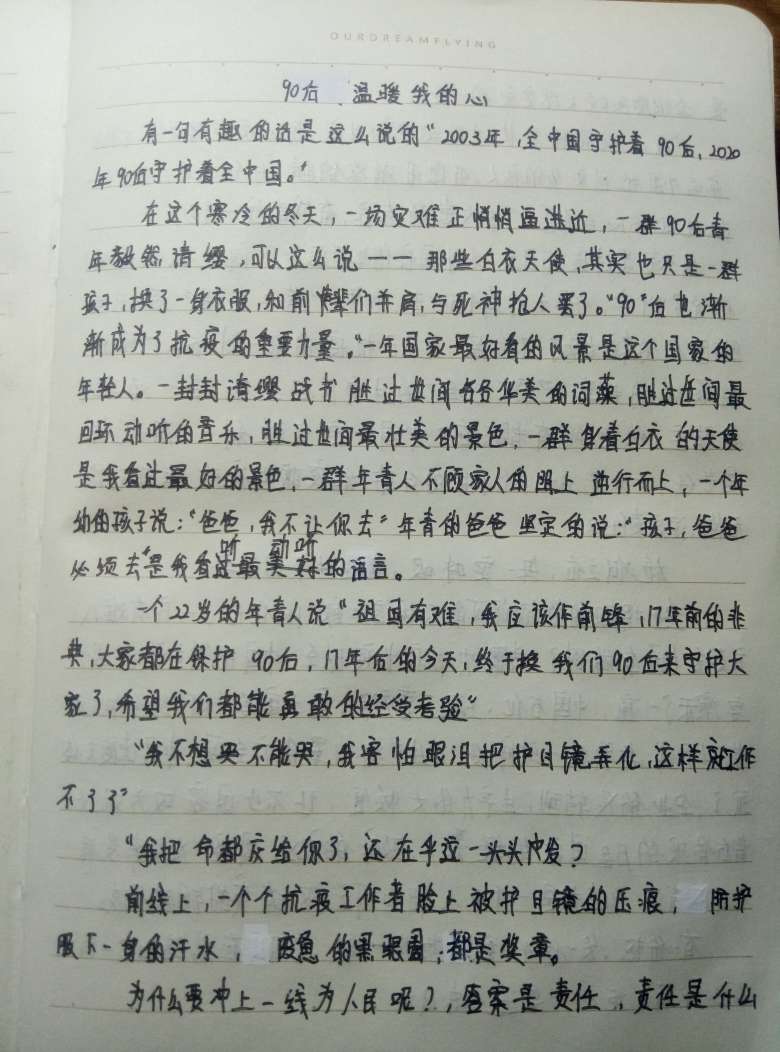 OURDREAMFLYING
90后 温暖我的心
有一句有趣的话是这么说的“2003年,全中国守护着90后,2020
年90后守护着全中国。”
在这个寒冷的冬天,一场灾难正悄悄逼进近,一群90后青
年毅然请缨,可以这么说——那些白衣天使,其实也只是一群
孩子,换了一身衣服,和前辈们并肩,与死神抢人罢了。“90”后也渐
渐成为了抗疫的重要力量。“一年国家最好看的风景是这个国家的
年轻人。一封封请缨战书胜过世间各各华美的词藻,胜过世间最
回环动听的音乐,胜过世间最壮美的景色,一群身着白衣的天使
是我看过最好的景色,一群年青人不顾家人的阻上逆行而上,一个年
幼的孩子说:“爸爸,我不让你去”年青的爸爸坚定的说:“孩子,爸爸
听 动听
必须去”是我看过最美好的语言。
一个22岁的年青人说“祖国有难,我应该作前锋,17年前的非
典,大家都在保护90后,17年后的今天,终于换我们90后来守护大
家了,希望我们都能勇敢的经受考验“
“我不想哭不能哭,我害怕眼泪把护目镜弄化,这样就工作
不了了”
“我把命都交给你了,还在乎这一头头发?
前线上,一个个抗疫工作者脸上被护目镜的压痕, 防护
服下一身的汗水, 疲惫的黑眼圈,都是奖章。
为什么要冲上一线为人民呢?,答案是责任,责任是什么